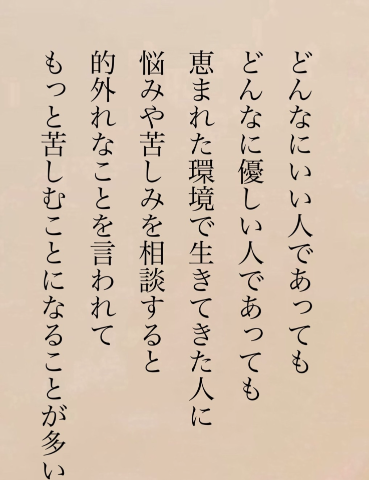 どんなにいい人であっても
どんなに優しい人であっても
恵まれた環境で生きてきた人に
悩みや苦しみを相談すると
的外れなことを言われて
もっと苦しむことになることが多い